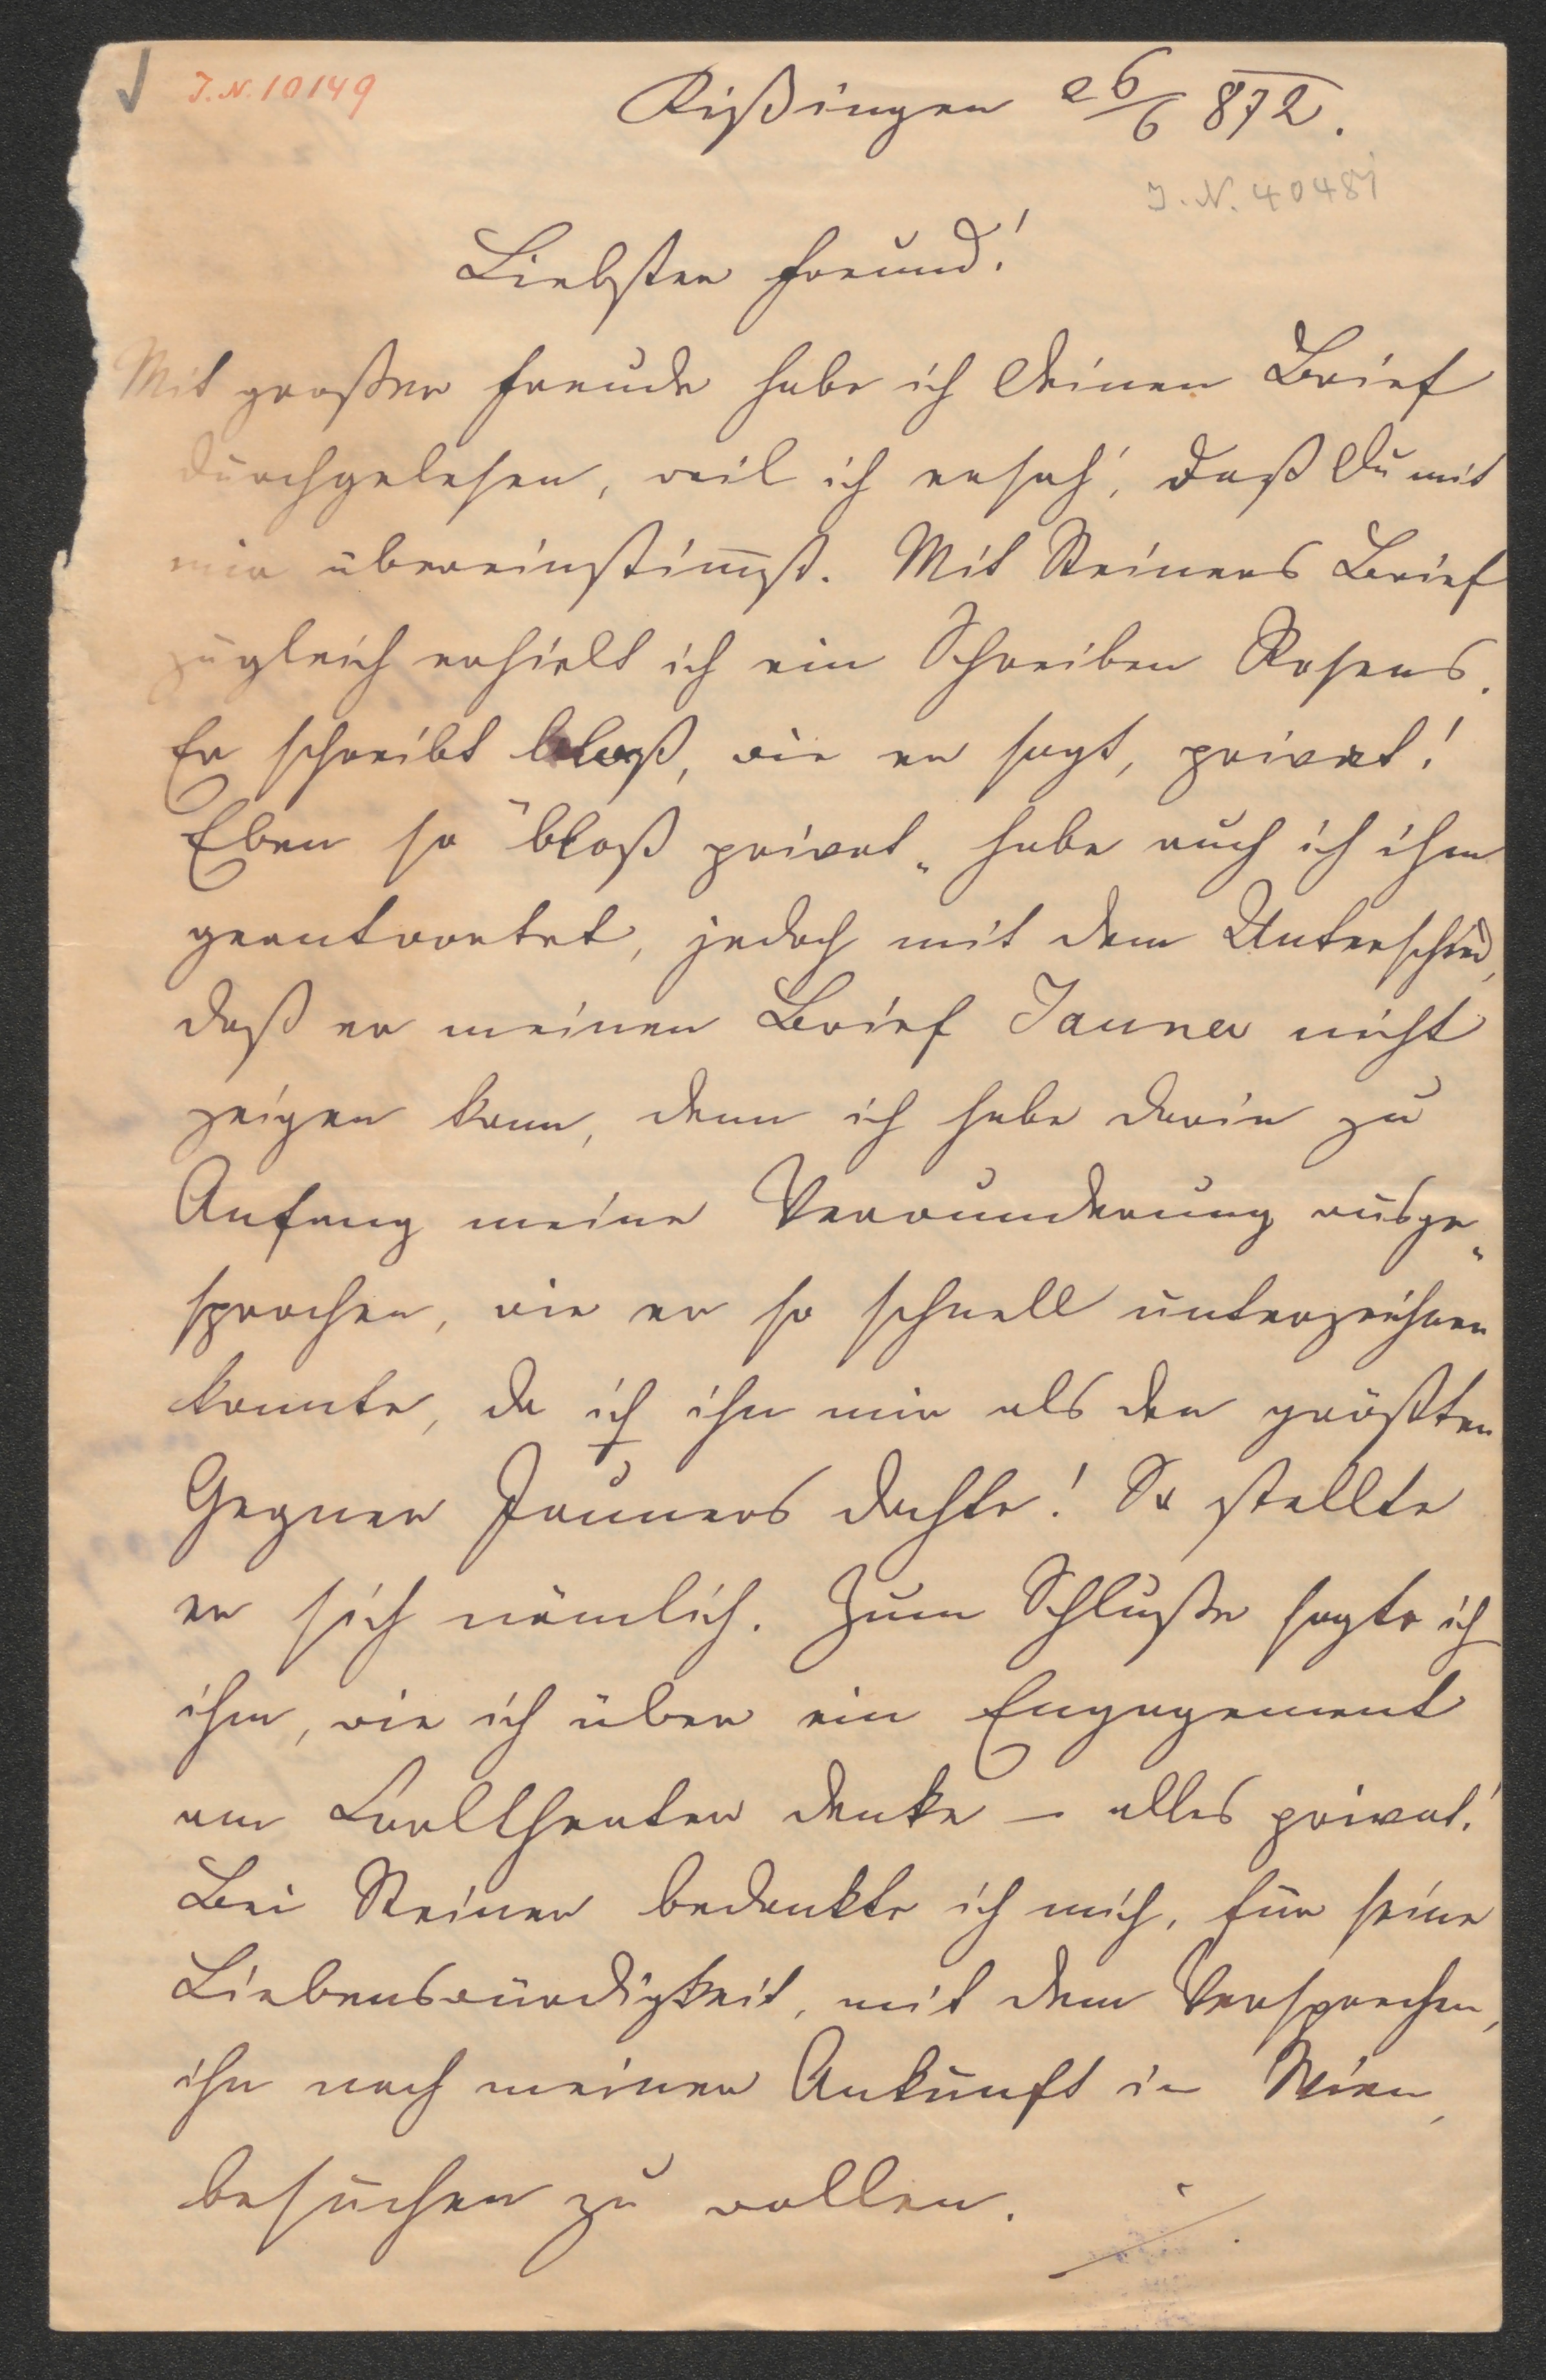 J.N. 10149
Kißingen 26/6 872.
J.N. 40481
Liebster Freund!
Mit großer Freude habe ich Deinen Brief
durchgelesen, weil ich ersah, daß Du mit
mir übereinstim̅st. Mit Steiners Brief
zugleich erhielt ich ein Schreiben Rosens.
Er schreibt bloß, wie er sagt, privat!
Eben so "bloß privat" habe auch ich ihm
geantwortet, jedoch mit dem Unterschied,
daß er meinen Brief Jauner nicht
zeigen kann, denn ich habe darin zu
Anfang meine Verwunderung ausge-
sprochen, wie er so schnell unterzeichnen
konnte, da ich ihn mir als den größten
Gegner Jauners dachte! So stellte
er sich nämlich. Zum Schluße sagte ich
ihm, wie ich über ein Engagement
am Carltheater denke – alles privat!
Bei Steiner bedankte ich mich, für seine
Liebenswürdigkeit, mit dem Versprechen,
ihn nach meiner Ankunft in Wien,
besuchen zu wollen. ./.